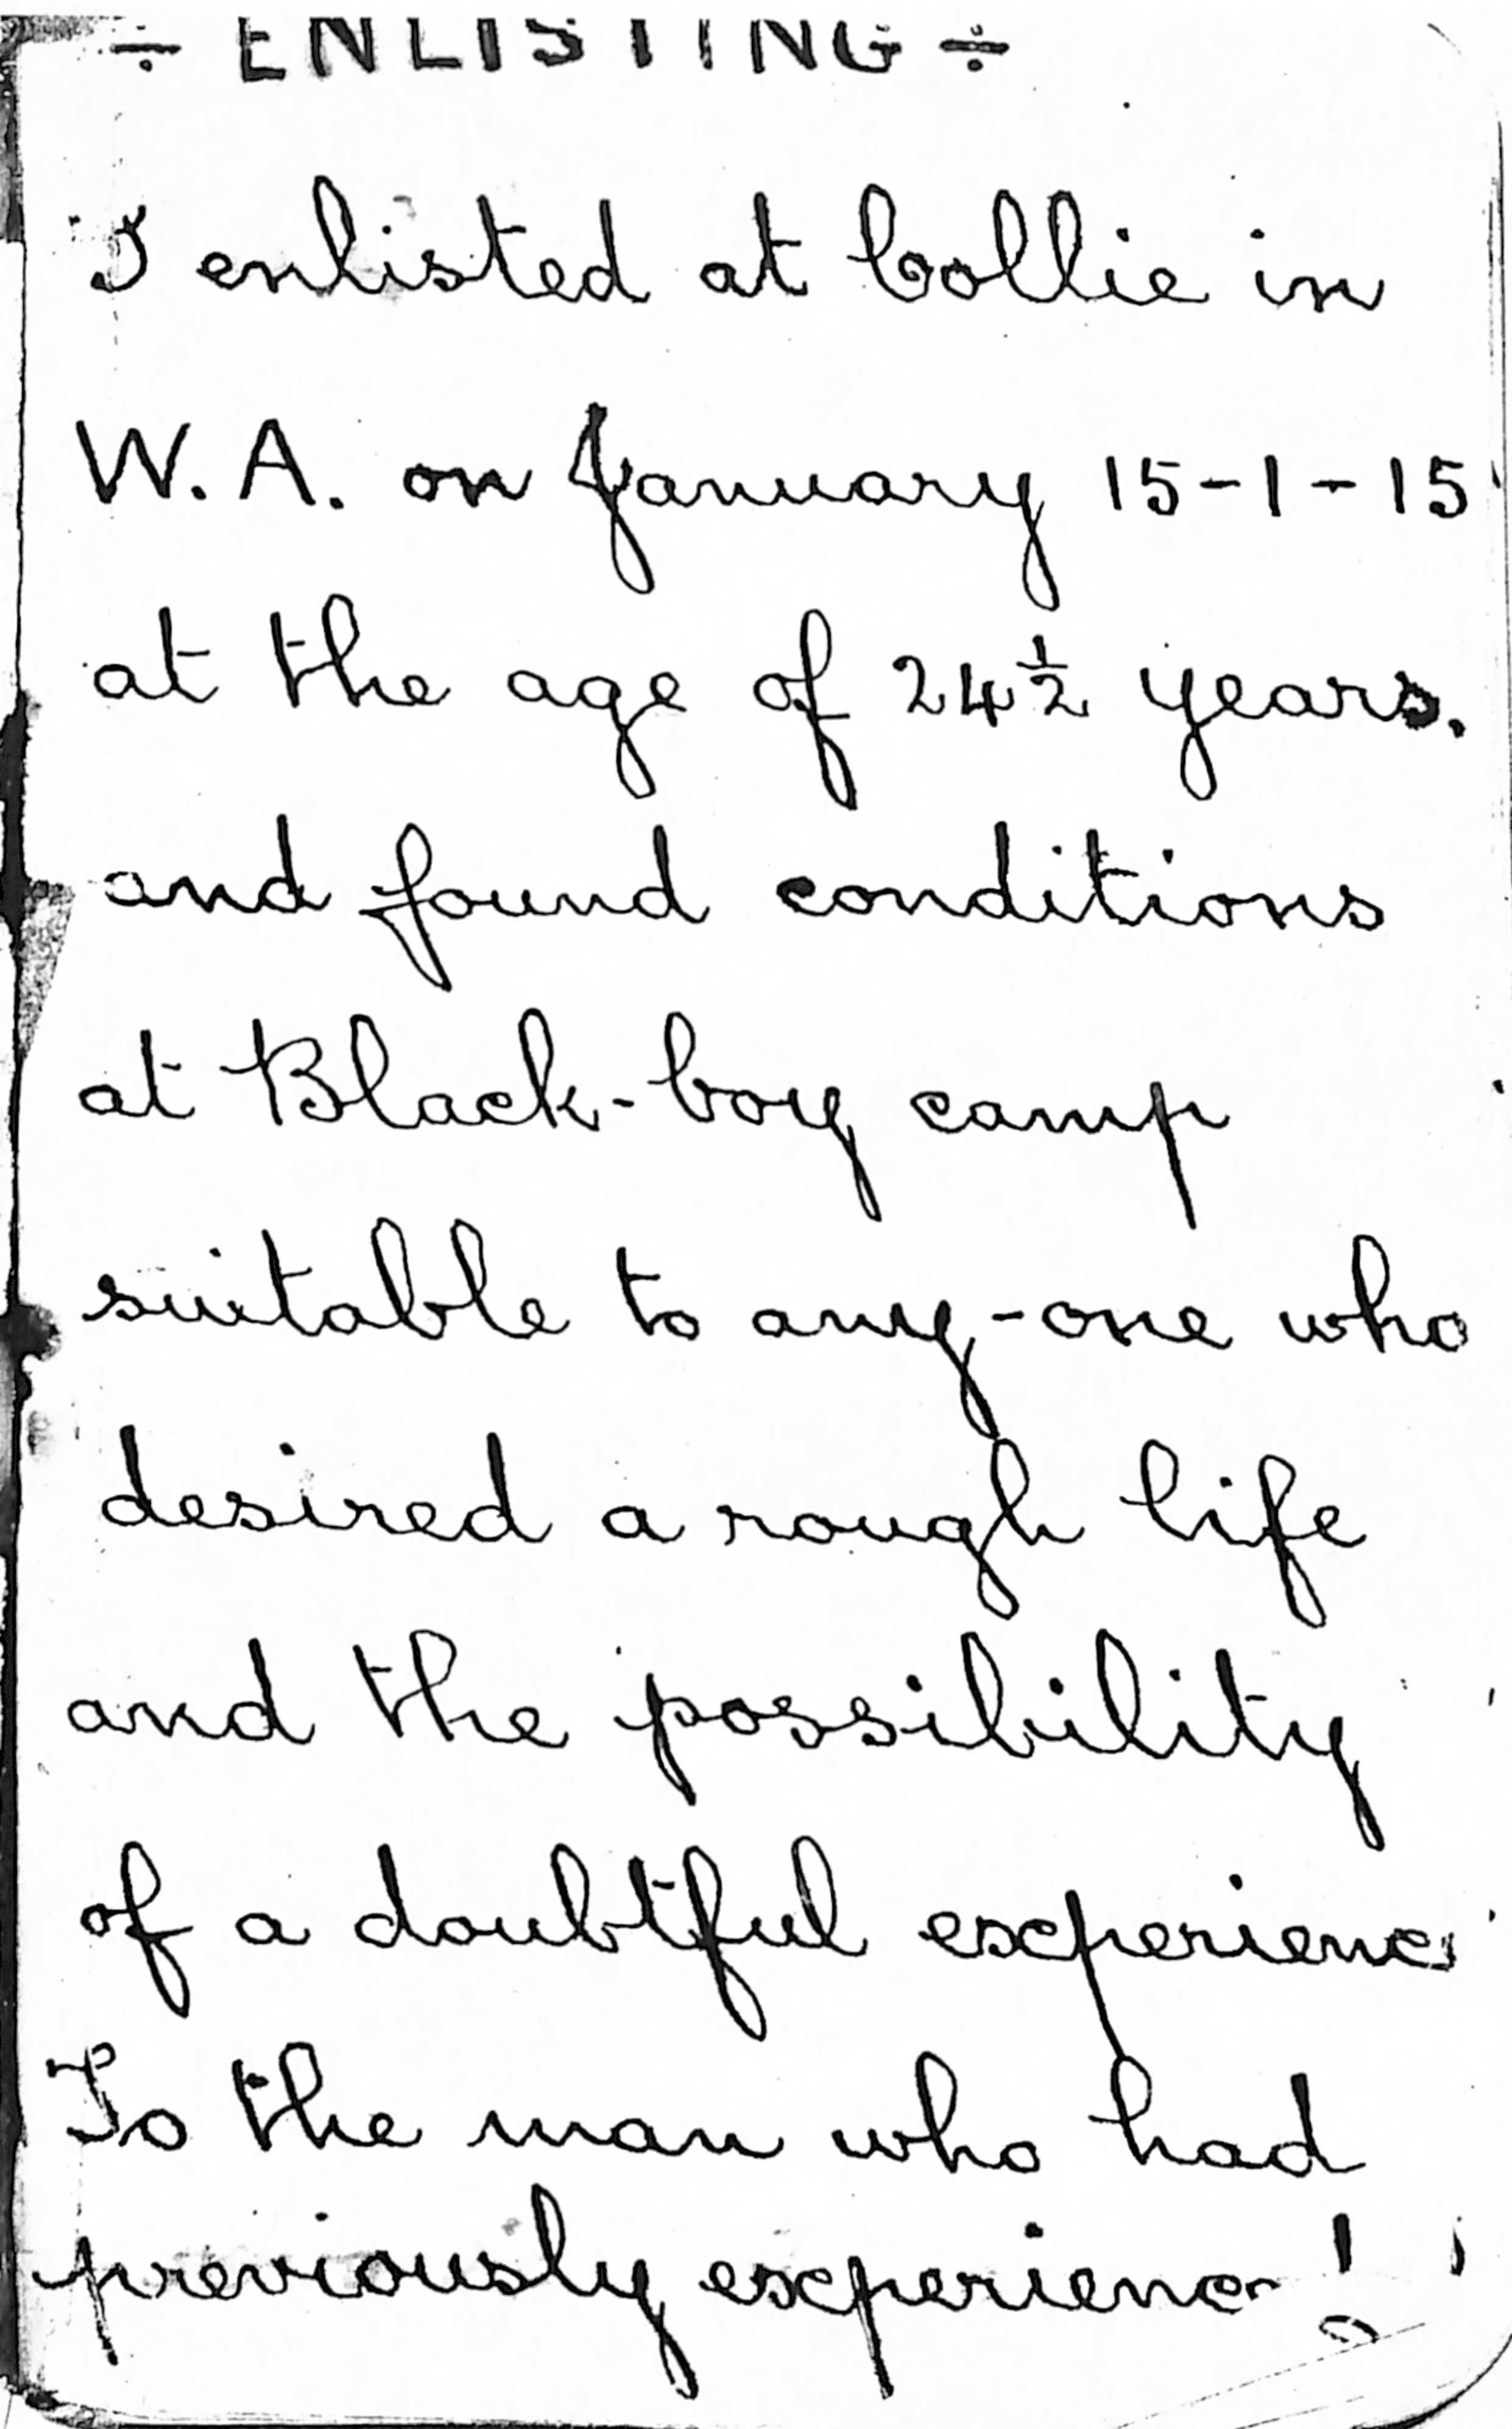 ÷ ENLISTING ÷
I enlisted at Collie in
W. A. on January 15-1-15
at the age of 24½ years.
and found conditions
at Black-boy camp
suitable to any-one who
desired a rough life
and the possibility
of a doubtful experience
To the man who had
previously experience!